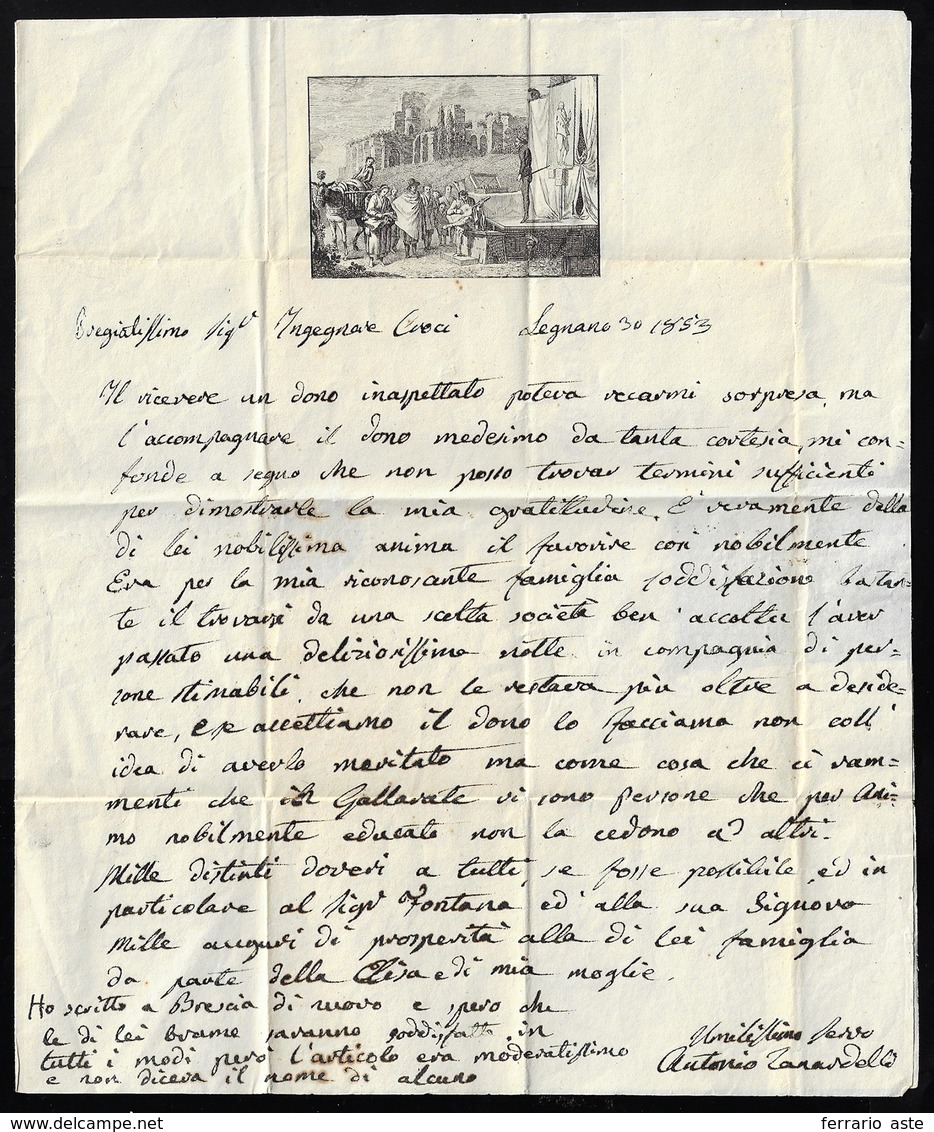 Pregiatissimo Sigr Ingegnare Croci Legnano 30 1853
Il ricevere un dono inaspettato poteva recarmi sorpresa, ma
l'accompagnare il dono medesimo da tanta cortesia, mi con-
fonde a segno che non posso trovar termini sufficienti
per dimostrarle la mia gratitudine. È veramente della
di lei nobilissima anima il favorire così nobilmente
Era per la mia riconoscente famiglia soddisfazione bastan-
te il trovarsi da una scelta società ben accolta l'aver
passato una deliziosissima notte in compagnia di per-
sone stimabili, che non le restava più oltre a deside-
rare, e se accettiamo il dono lo facciamo non coll'
idea di averlo meritato ma come cosa che ci ram-
menti che in Gallarate vi sono persone che per ani-
mo nobilmente educato non la cedono ad altri.
Mille distinti doveri a tutti, se fosse possibile, ed in
particolare al Sigr Fontana ed alla sua Signora
Mille auguri di prosperità alla di lei famiglia
da parte della Elisa e di mia moglie.
Ho scritto a Brescia di nuovo e spero che
le di lei brame saranno soddisfatte in
tutti i modi però l'articolo era moderatissimo
e non diceva il nome di alcuno
Umilissimo servo
Antonio Zanardelli
ferrario aste